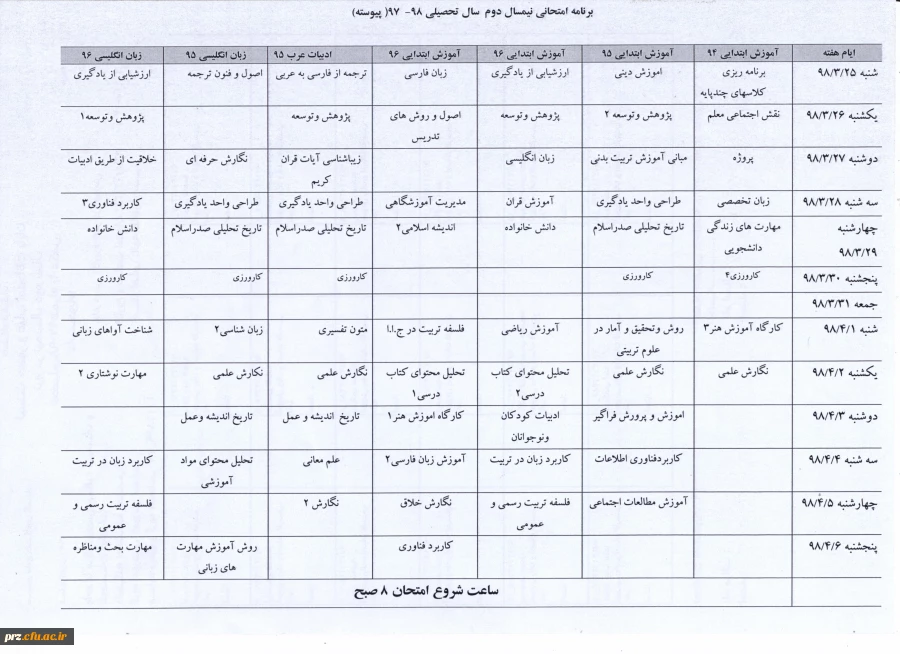 برنامه امتحانی نیمسال دوم سال تحصیلی ۹۸- ۹۷( پیوسته)
ایام هفته آموزش ابتدایی ۹۴ آموزش ابتدایی ۹۵ آموزش ابتدایی ۹۶ آموزش ابتدایی ۹۶ ادبیات عرب ۹۵ زبان انگلیسی ۹۵ زبان انگلیسی ۹۶
شنبه ۹۸/۳/۲۵ برنامه ریزی اموزش دینی ارزشیابی از یادگیری زبان فارسی ترجمه از فارسی به عربی اصول و فنون ترجمه ارزشیابی از یادگیری
کلاسهای چندپایه
یکشنبه ۹۸/۳/۲۶ نقش اجتماعی معلم پژوهش وتوسعه ۲ پژوهش وتوسعه اصول و روش های پژوهش وتوسعه پژوهش وتوسعه۱
تدریس
دوشنبه ۹۸/۳/۲۷ پروژه مبانی آموزش تربیت بدنی زبان انگلیسی زیباشناسی آیات قران نگارش حرفه ای خلاقیت از طریق ادبیات
کریم
سه شنبه ۹۸/۳/۲۸ زبان تخصصی طراحی واحد یادگیری آموزش قران مدیریت آموزشگاهی طراحی واحد یادگیری طراحی واحد یادگیری کاربرد فناوری۳
چهارشنبه مهارت های زندگی تاریخ تحلیلی صدراسلام دانش خانواده اندیشه اسلامی۲ تاریخ تحلیلی صدراسلام تاریخ تحلیلی صدراسلام دانش خانواده
۹۸/۳/۲۹ دانشجویی
پنجشنبه ۹۸/۳/۳۰ کارورزی۴ کارورزی کارورزی کارورزی کارورزی
جمعه ۹۸/۳/۳۱
شنبه ۹۸/۴/۱ کارگاه آموزش هنر۳ روش وتحقیق و آمار در آموزش ریاضی فلسفه تربیت در ج.ا.ا متون تفسیری زبان شناسی۲ شناخت آواهای زبانی
علوم تربیتی
یکشنبه ۹۸/۴/۲ نگارش علمی نگارش علمی تحلیل محتوای کتاب تحلیل محتوای کتاب نگارش علمی نگارش علمی مهارت نوشتاری ۲
درسی۲ درسی۱
دوشنبه ۹۸/۴/۳ اموزش و پرورش فراگیر ادبیات کودکان کارگاه اموزش هنر۱ تاریخ اندیشه و عمل تاریخ اندیشه وعمل
ونوجوانان
سه شنبه ۹۸/۴/۴ کاربردفناوری اطلاعات کاربرد زبان در تربیت آموزش زبان فارسی۲ علم معانی تحلیل محتوای مواد کاربرد زبان در تربیت
آموزشی
چهارشنبه ۹۸/۴/۵ آموزش مطالعات اجتماعی فلسفه تربیت رسمی و نگارش خلاق نگارش ۲ فلسفه تربیت رسمی و
عمومی عمومی
پنجشنبه ۹۸/۴/۶ کاربرد فناوری روش آموزش مهارت مهارت بحث ومناظره
های زبانی
ساعت شروع امتحان ۸ صبح
prz.cfu.ac.ir